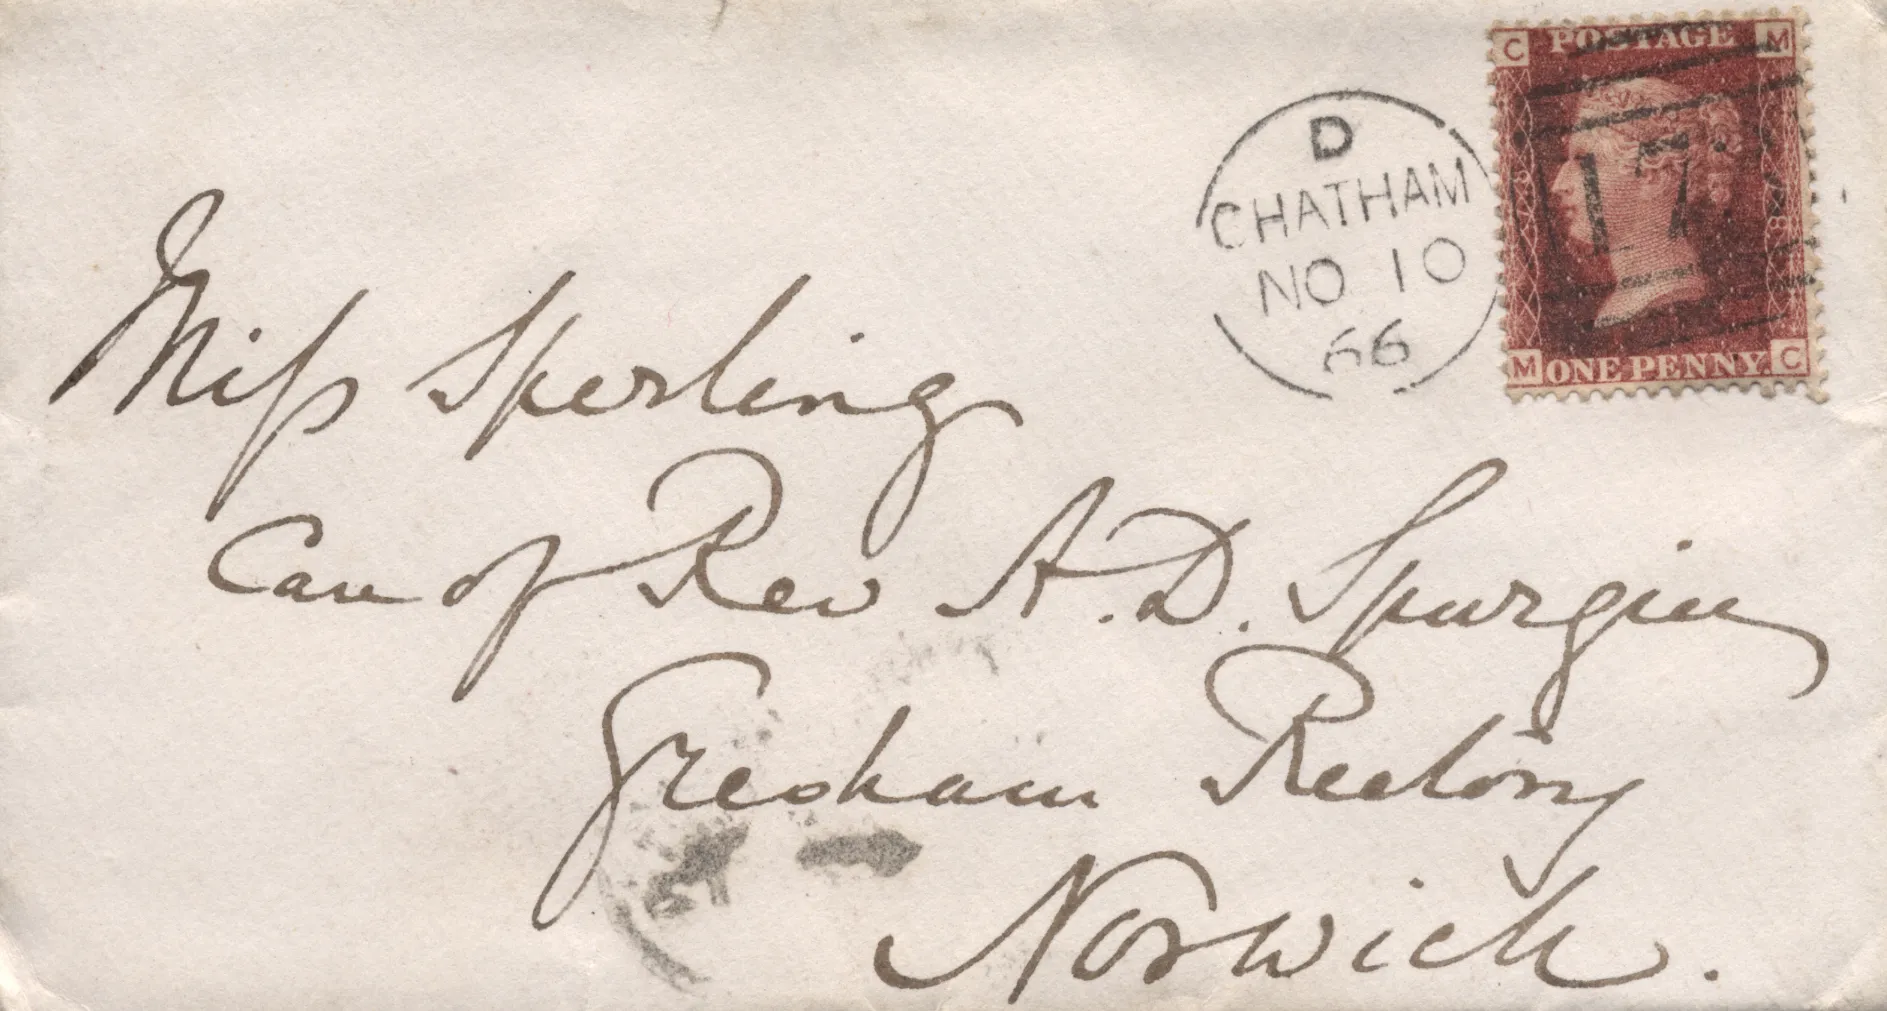 C POSTAGE M
D
CHATHAM
NO 10
66
17
M ONE PENNY. C
Miss Sperling
Care of Rev A. D. Spurgin
Gresham Rectory
Norwich.